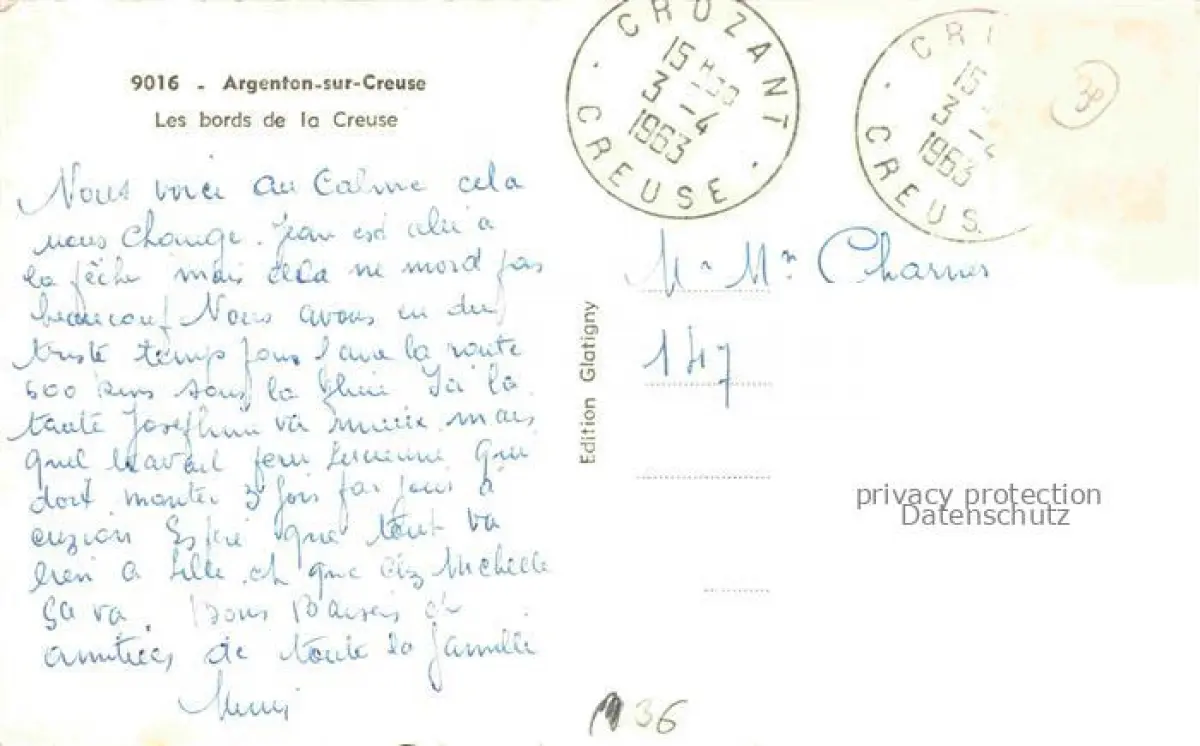 9016 - Argenton-sur-Creuse
Les bords de la Creuse
Nous voici au Calme cela
nous change. Jean est allé a
la pêche mais cela ne mord pas
beaucoup Nous avons eu du
triste temps pour faire la route
600 kms sous la pluie Ici la
tante Josephine va mieux mais
quel travail pour Lucienne qui
doit monter 3 fois par jour à
cuzion Espère que tout va
bien a Lille et que chez Michelle
ça va. Bons Baisers et
amitiés de toute la famille
CROZANT
15 H 30
3 - 4
1963
CREUSE
CR
15
3 - 4
1963
CREUS
30
M. Mme
147
Edition Glatigny
privacy protection
Datenschutz
36